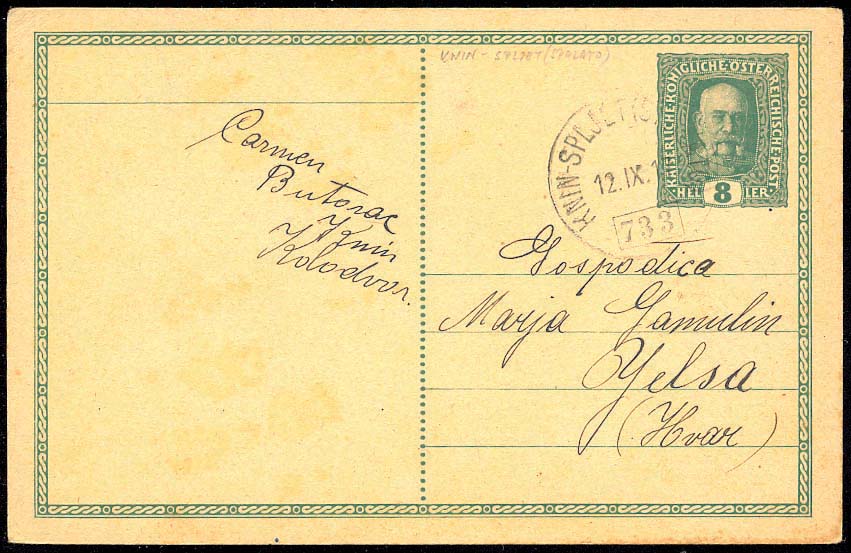 KNIN - SPLJET (SPALATO)
KNIN-SPLJET (S
12.IX.1
733
KAISERLICHE·KÖNIGLICHE·ÖSTERREICHISCHE·POST
HELLER
8
Carmen
Butorac
Knin
Kolodvor.
Gospodica
Marja Gamulin
Yelsa
(Hvar)